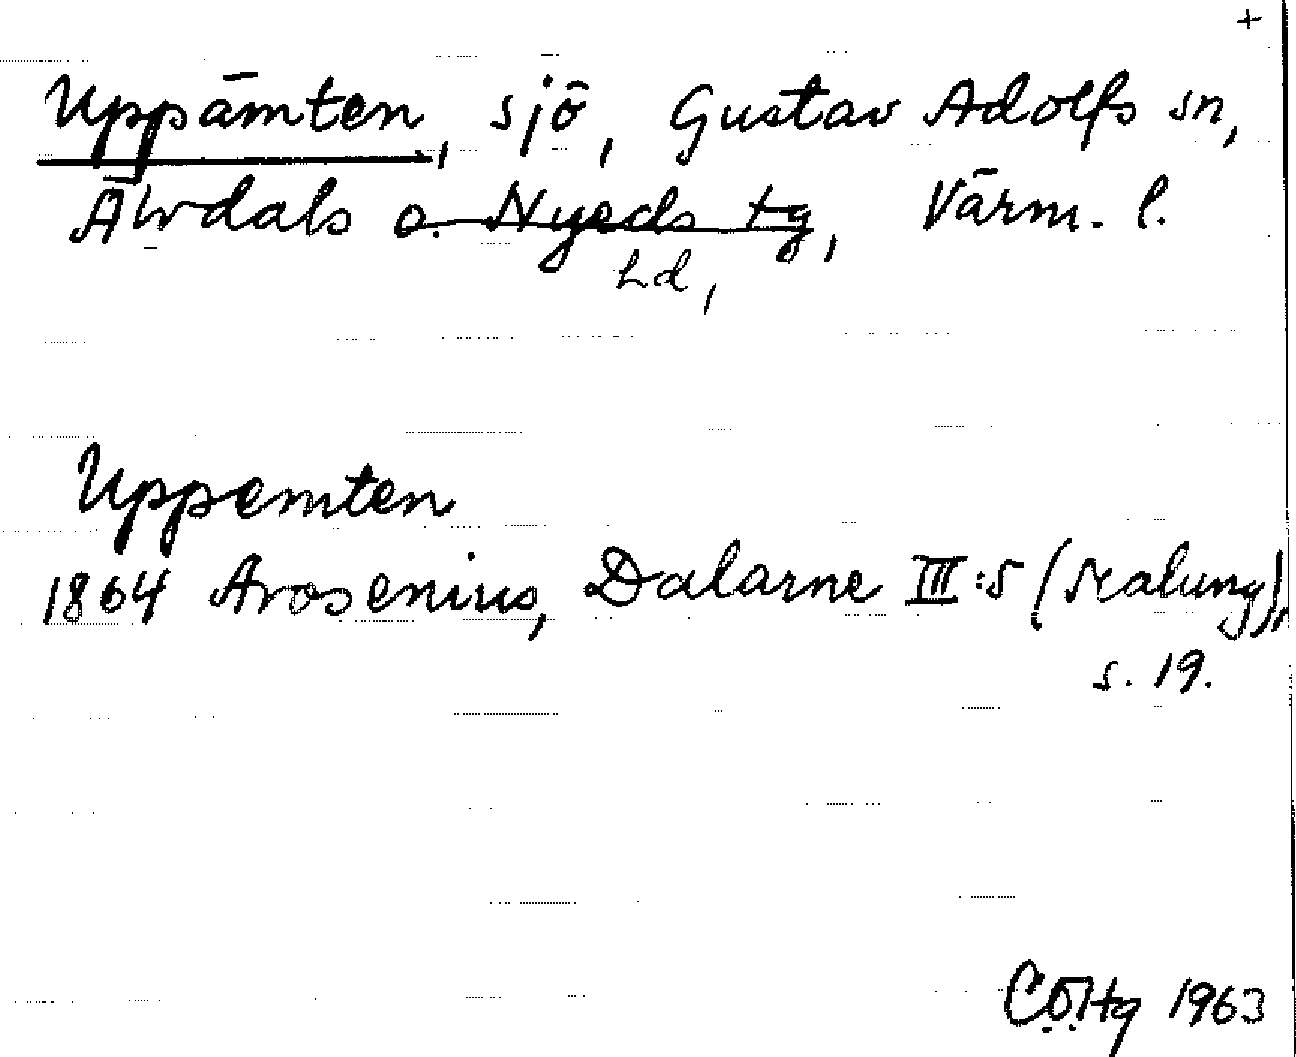 +
Uppämten, sjö, Gustav Adolfs sn,
Älvdals o. Nyeds tg, Värm. l.
hd,
Uppemten
1864 Arosenius, Dalarne III:5 (Malung),
s. 19.
1963